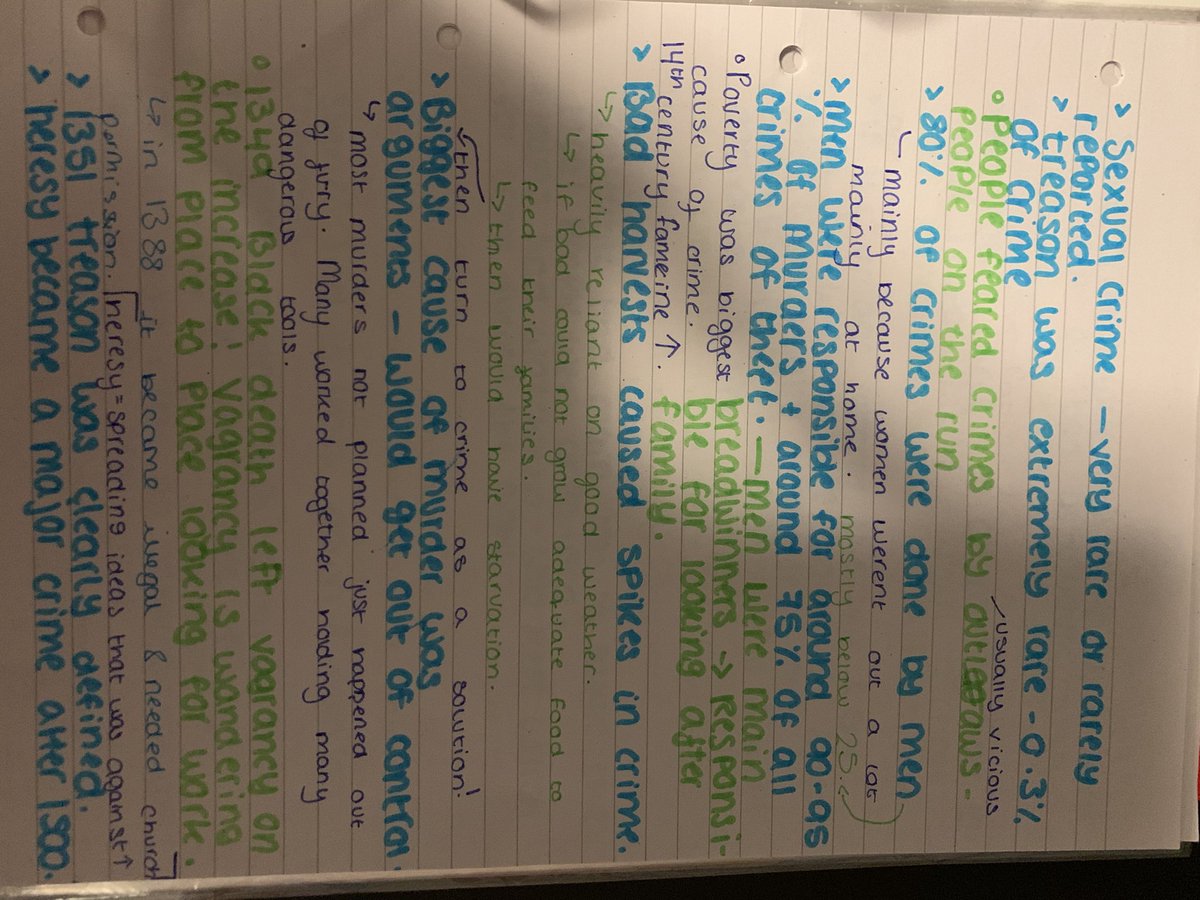 > Sexual crime - very rare or rarely
reported.
> treason was extremely rare - 0.3%
of crime
usually vicious
• People feared crimes by outlaws -
people on the run
> 80% of crimes were done by men
mainly because women werent out a lot
mainly at home. mostly below 25.
> Men were responsible for around 90.as
% of murders + around 75% of all
crimes of theft. - men were main
• Poverty was biggest breadwinners -> Responsi-
cause of crime. ble for looking after
14th century fameine ↑. family.
> Bad harvests caused spikes in crime.
↳ heavily reliant on good weather.
↳ if bad could not grow adequate food to
feed their families.
↳ then would have starvation.
then turn to crime as a solution!
> Biggest cause of murder was
arguments - would get out of control.
↳ most murders not planned just happened out
of furry. Many worked together holding many
dangerous tools.
• 134d Black death left vagrancy on
the increase! Vagrancy is wandering
from place to place looking for work.
↳ in 1388 it became illegal & needed church
permission. heresy = spreading ideas that was against ↑
> 1351 treason was clearly defined.
> heresy became a major crime after 1500.